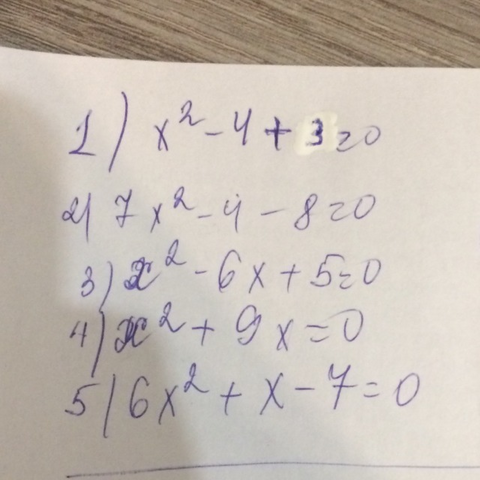 1) x² - 4 + 3 = 0
2) 7x² - 4 - 8 = 0
3) x² - 6x + 5 = 0
4) x² + 9x = 0
5) 6x² + x - 7 = 0